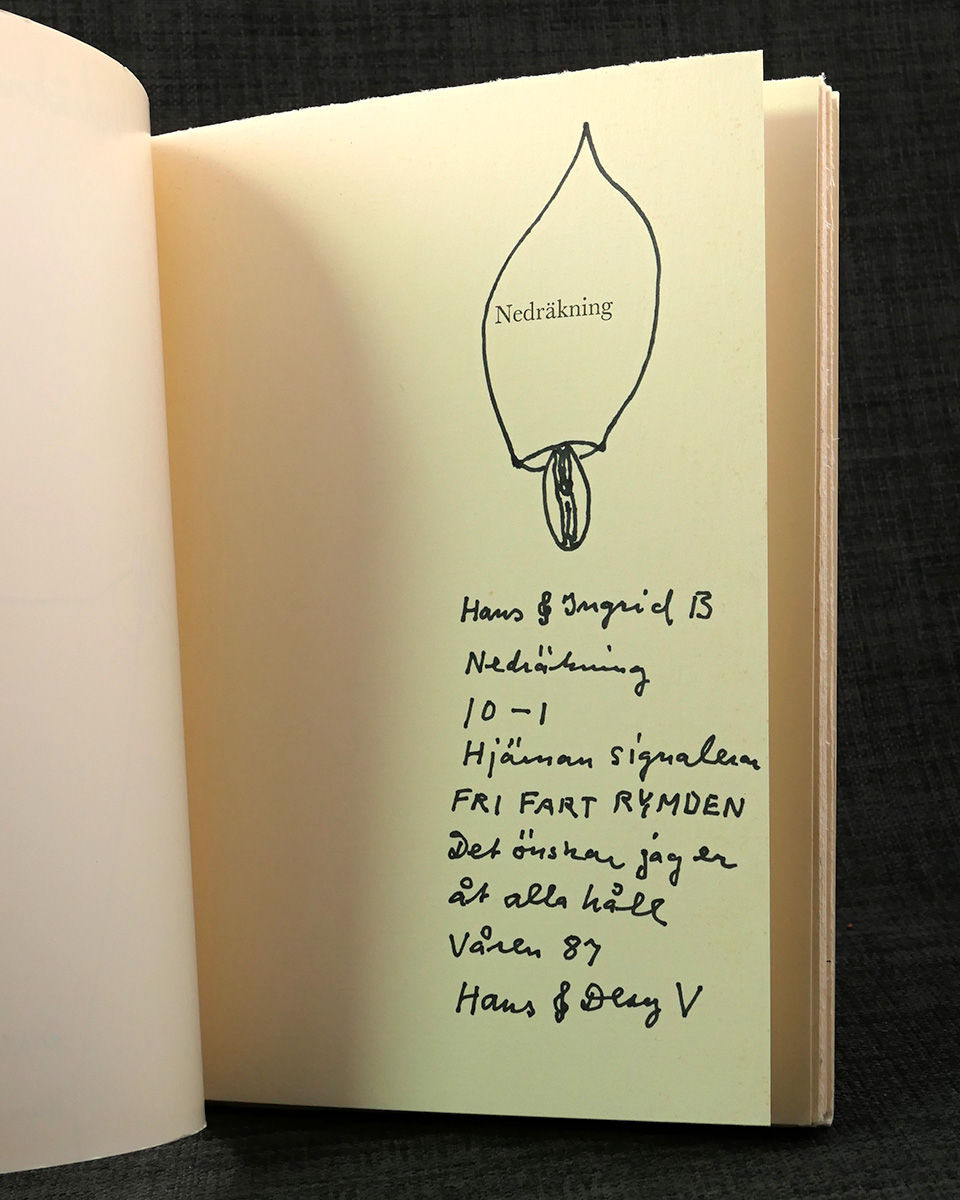 Nedräkning
Hans & Ingrid B
Nedräkning
10-1
Hjärnan signalerar
FRI FART RYMDEN
Det önskar jag er
åt alla håll
Våren 87
Hans & V